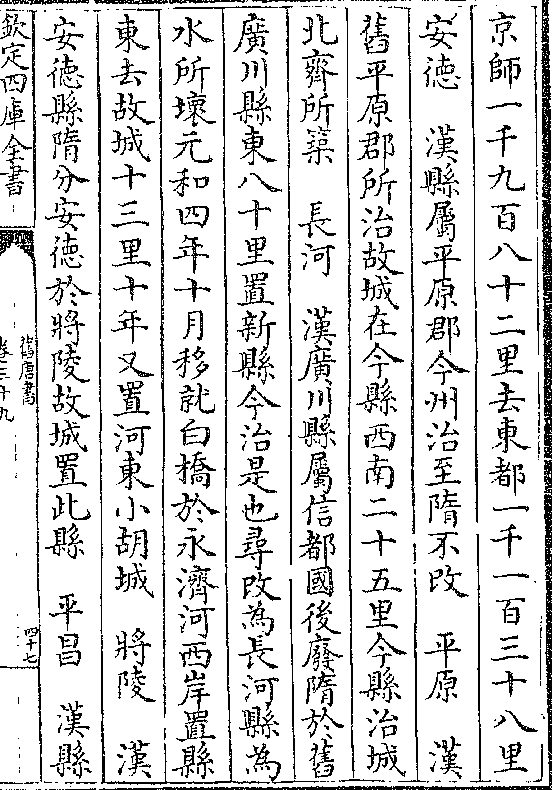 京師一千九百八十二里去東都一千一百三十八里
安德　漢縣屬平原郡今州治至隋不改　平原　漢
舊平原郡所治故城在今縣西南二十五里今縣治城
北齊所築　長河　漢廣川縣屬信都國後廢隋於舊
廣川縣東八十里置新縣今治是也尋改為長河縣為
水所壞元和四年十月移就白橋於永濟河西岸置縣
東去故城十三里十年又置河東小胡城　將陵　漢
安德縣隋分安德於將陵故城置此縣　平昌　漢縣
欽定四庫全書
舊唐書
卷三十九
四十七